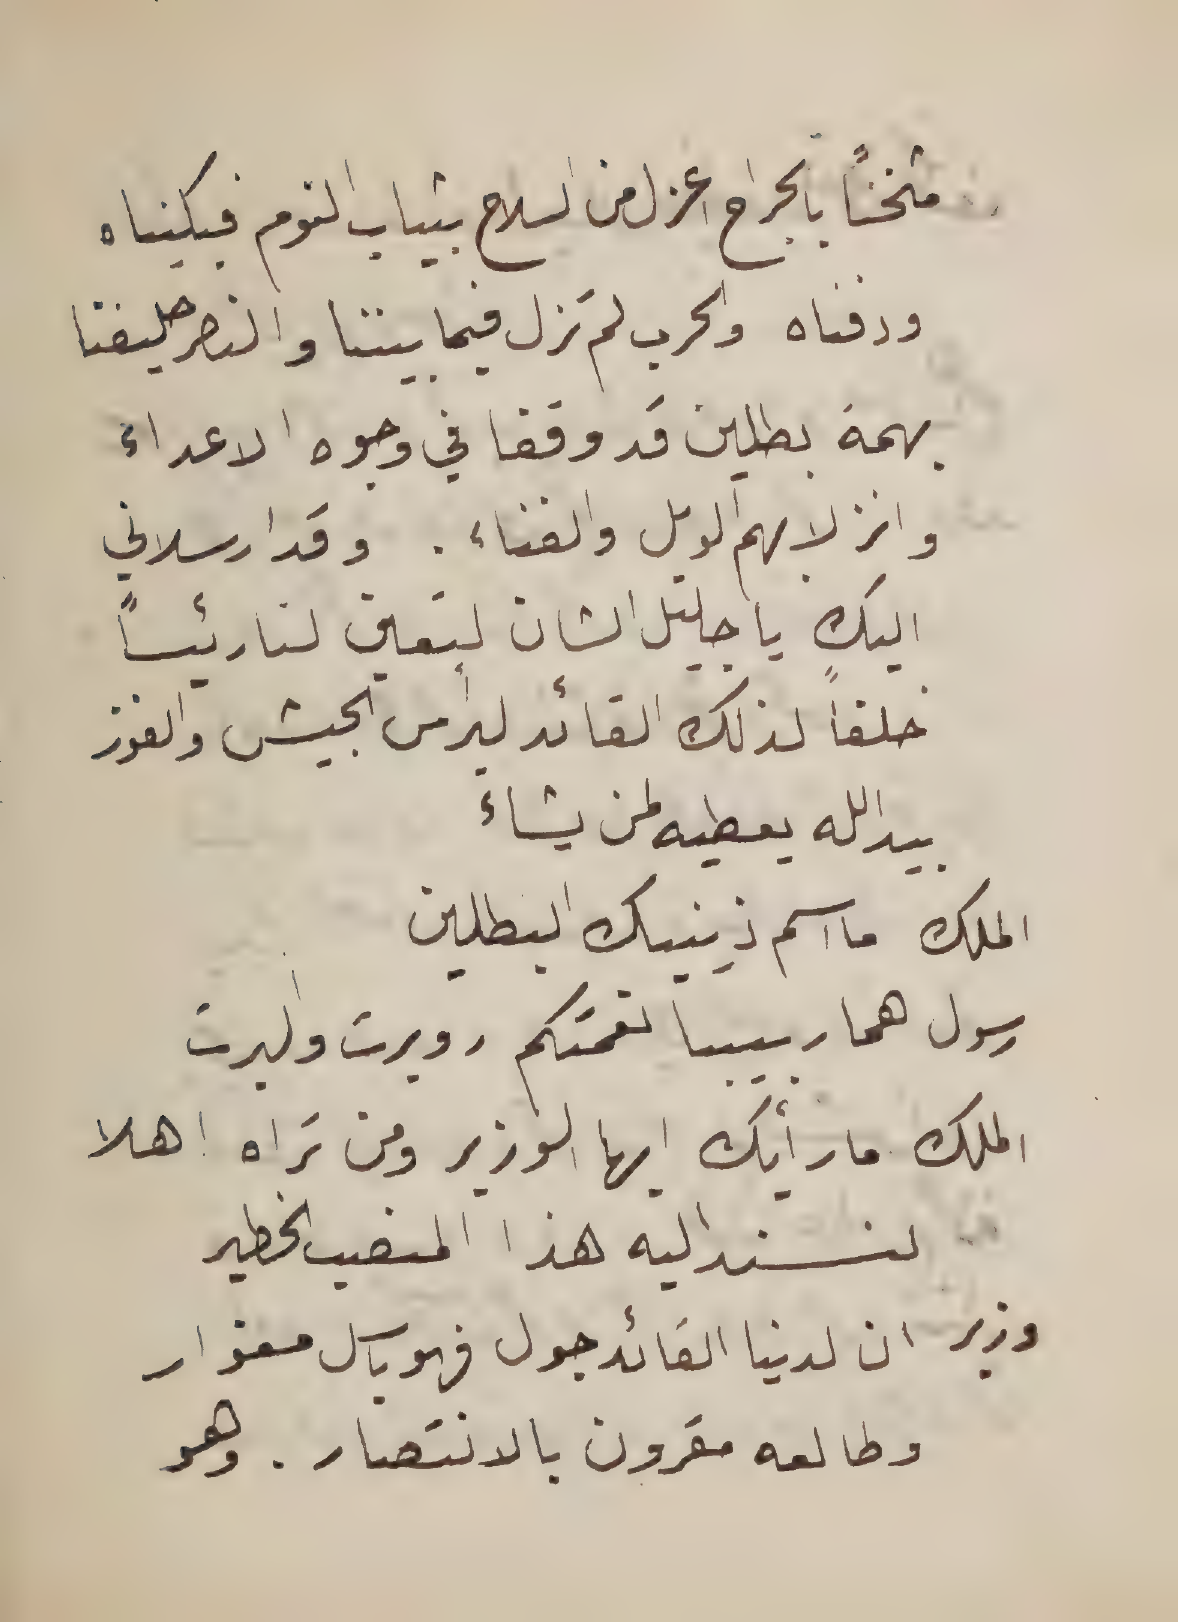 مثخناً بالجراح اعزل من السلاح بثياب النوم فبكيناه
ودفناه والحرب لم تزل فيما بيننا والنصر حليفنا
بهمة بطلين قد وقفا في وجوه الاعداء
وانزلا بهم الويل والفناء . وقد ارسلاني
اليك يا جليل الشان لتعين لنا رئيساً
خلفاً لذلك القائد ليرأس الجيش والفوز
بيد الله يعطيه لمن يشاء
الملك ما اسم ذينيك البطلين
رسول هما ربيبا نعمتكم روبرت والبرت
الملك ما رأيك ايها الوزير ومن تراه اهلا
لنسند اليه هذا المنصب الخطير
وزير ان لدينا القائد جول فهو باسل مغوار
وطالعه مقرون بالانتصار . وهو